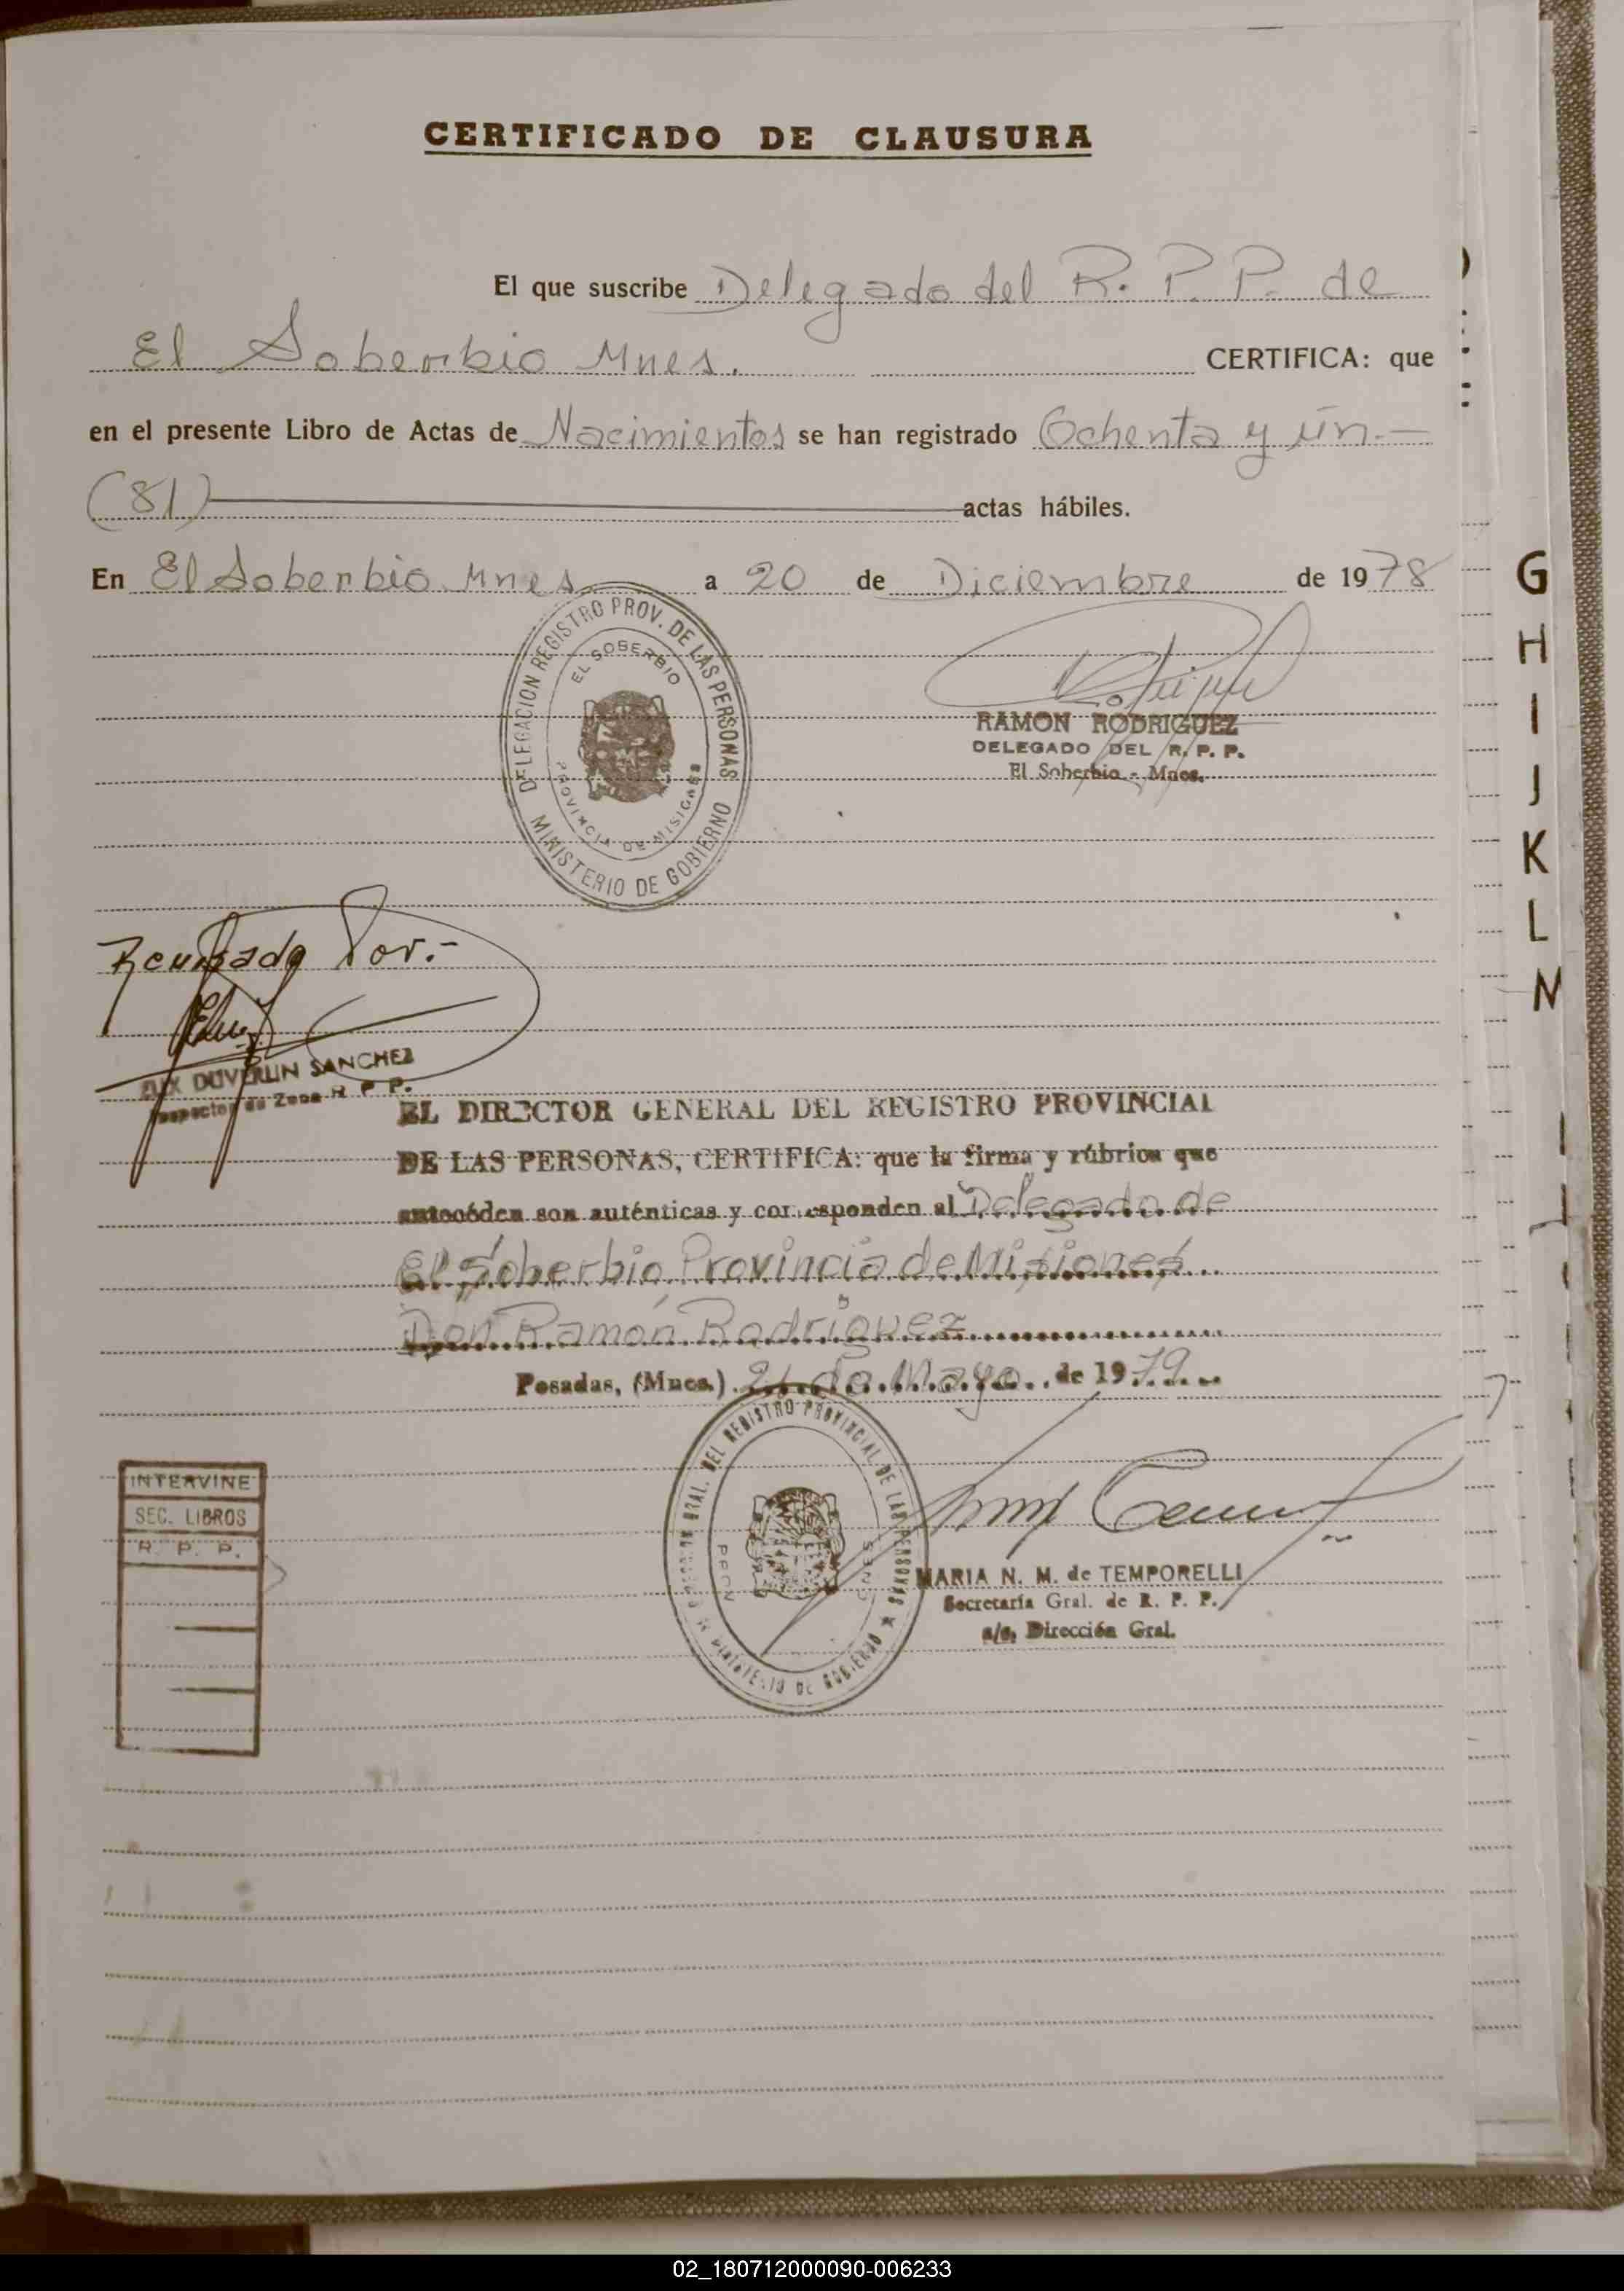 CERTIFICADO DE CLAUSURA
El que suscribe Delegado del R. P. P. de
El Soberbio Mnes. CERTIFICA: que
en el presente Libro de Actas de Nacimientos se han registrado Ochenta y ún.-
(81) actas hábiles.
En El Soberbio Mnes a 20 de Diciembre de 1978
DELEGACION REGISTRO PROV. DE LAS PERSONAS
EL SOBERBIO
PROVINCIA DE MISIONES
MINISTERIO DE GOBIERNO
RAMON RODRIGUEZ
DELEGADO DEL R. P. P.
El Soberbio - Mnes.
Revisado Por.-
DUVERLIN SANCHEZ
Inspector de Zona R P P.
EL DIRECTOR GENERAL DEL REGISTRO PROVINCIAL
DE LAS PERSONAS, CERTIFICA: que la firma y rúbrica que
anteceden son auténticas y corresponden al Delegado de
El Soberbio Provincia de Misiones
Don Ramón Rodriguez
Posadas, (Mnes.) 21 de Mayo de 1979
GRAL. DEL REGISTRO PROVINCIAL DE LAS PERSONAS
MINISTERIO DE GOBIERNO
PROV
INTERVINE
SEC. LIBROS
R. P. P.
MARIA N. M. de TEMPORELLI
Secretaría Gral. de R. P. P.
a/c. Dirección Gral.
G
H
I
J
K
L
N
02_180712000090-006233